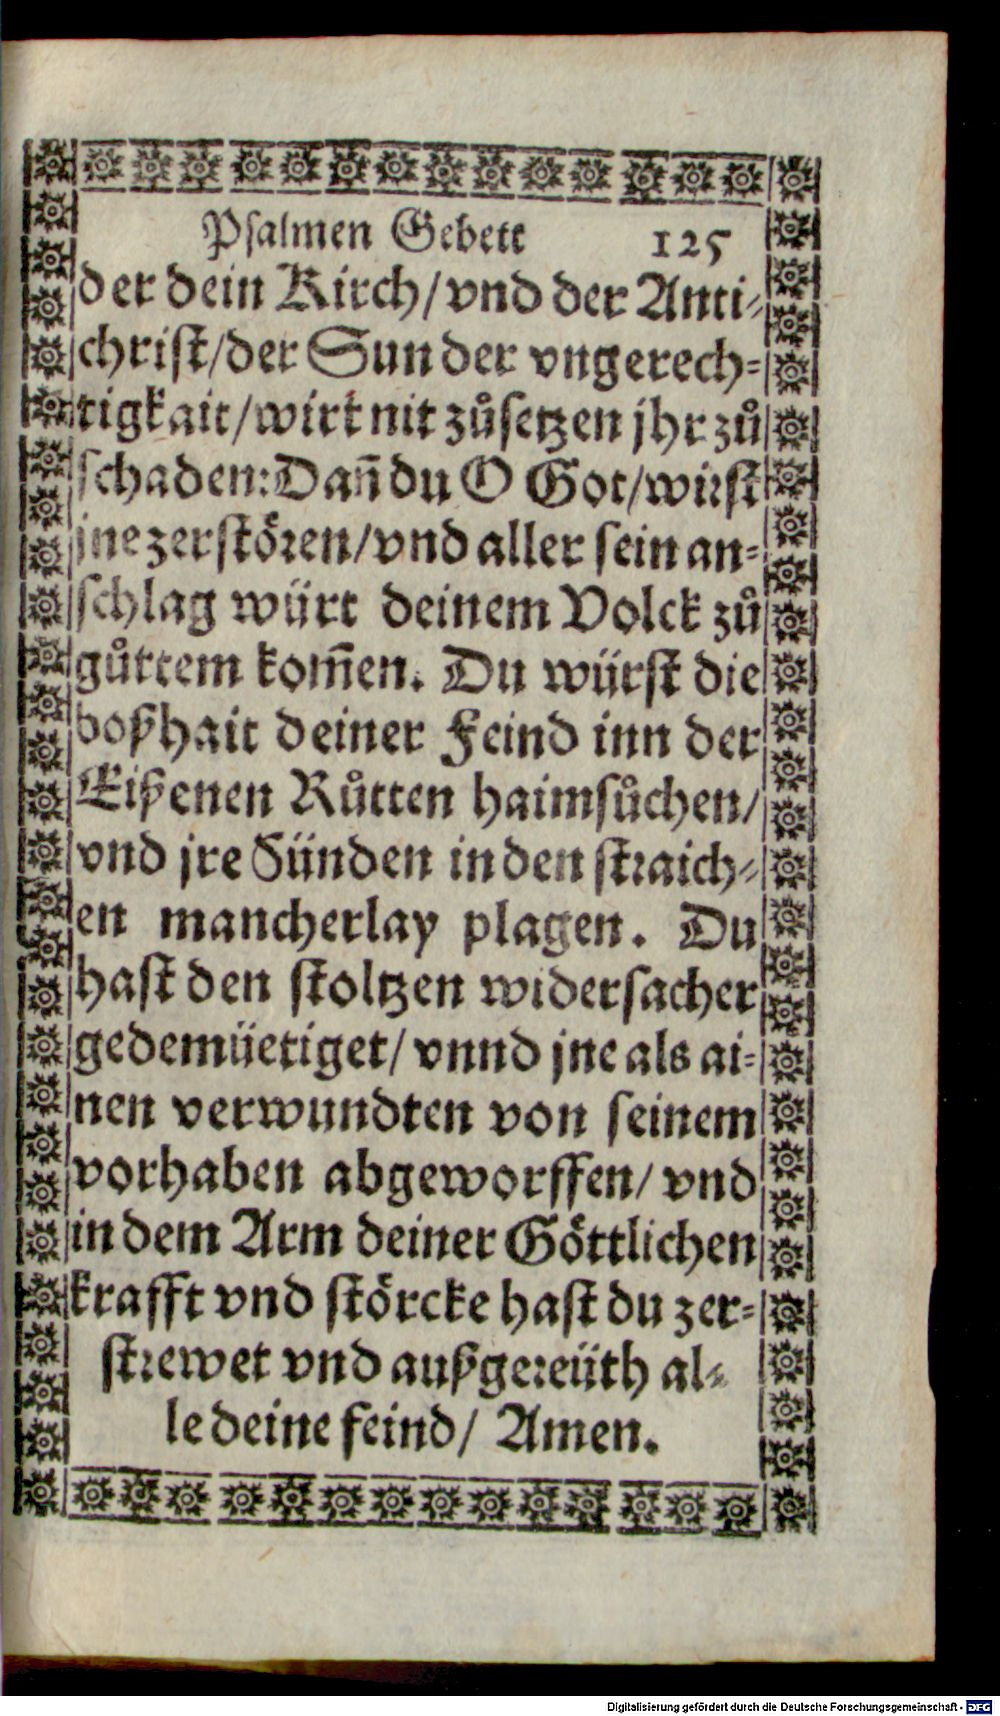 Psalmen Gebett 125
der dein Kirch/vnd der Anti-
christ/der Sun der vngerech-
tigkait/wirt nit zůsetzen jhr zů
schaden: Dañ du O Got/würst
jne zerstören/vnd aller sein an-
schlag würt deinem Volck zů
gůttem kom̃en. Du würst die
boßhait deiner Feind inn der
Eißenen Růtten haimsůchen/
vnd jre Sünden in den straich-
en mancherlay plagen. Du
hast den stoltzen widersacher
gedemüetiget/ vnnd jne als ai-
nen verwundten von seinem
vorhaben abgeworffen/ vnd
in dem Arm deiner Göttlichen
krafft vnd störcke hast du zer-
strewet vnd außgereüth al-
le deine feind/ Amen.
Digitalisierung gefördert durch die Deutsche Forschungsgemeinschaft - DFG